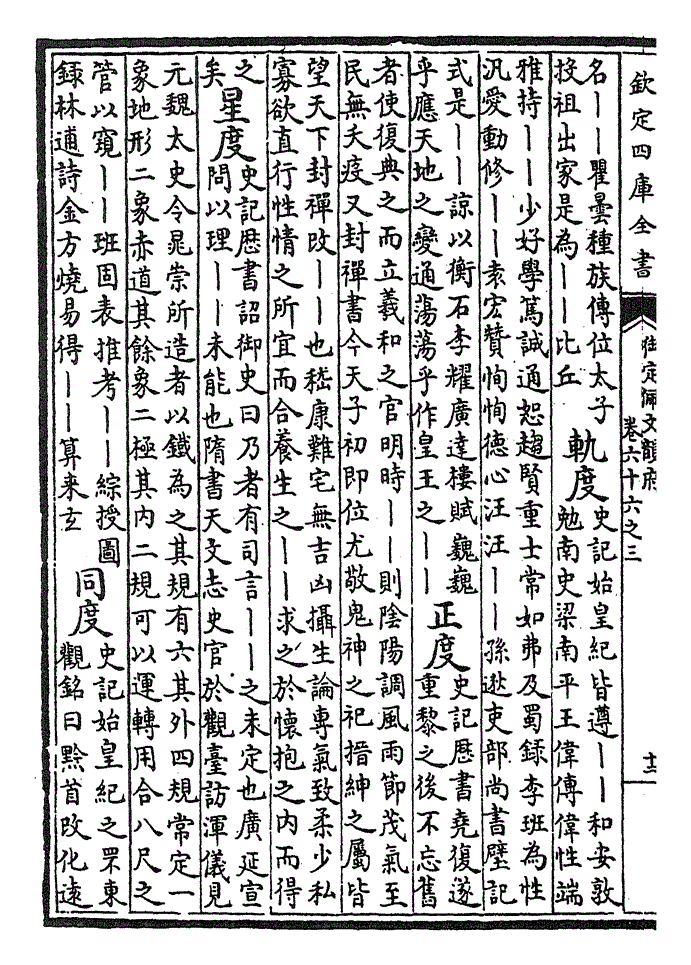 欽定四庫全書
御定佩文韻府
卷六十六之三
十二
名——瞿曇種族傳位太子
投祖出家是為——比丘
軌度
史記始皇紀皆遵——和安敦
勉南史梁南平王偉傳偉性端
雅持——少好學篤誠通恕趨賢重士常如弗及蜀録李班為性
汎愛動修——袁宏贊恂恂德心汪汪——孫逖吏部尚書壁記
式是——諒以衡石李耀廣達樓賦巍巍
乎應天地之變通蕩蕩乎作皇王之——
正度
史記厯書堯復遂
重黎之後不忘舊
者使復典之而立羲和之官明時——則陰陽調風雨節茂氣至
民無夭疫又封禪書今天子初即位尤敬鬼神之祀搢紳之屬皆
望天下封禪改——也嵇康難宅無吉凶攝生論專氣致柔少私
寡欲直行性情之所宜而合養生之——求之於懷抱之内而得
之
矣
星度
史記厯書詔御史曰乃者有司言——之未定也廣延宣
問以理——未能也隋書天文志史官於觀臺訪渾儀見
元魏太史令晁崇所造者以鐵為之其規有六其外四規常定一
象地形二象赤道其餘象二極其内二規可以運轉用合八尺之
管以窺——班固表推考——綜授圖
録林逋詩金方燒易得——算来𤣥
同度
史記始皇紀之罘東
觀銘曰黔首改化逺